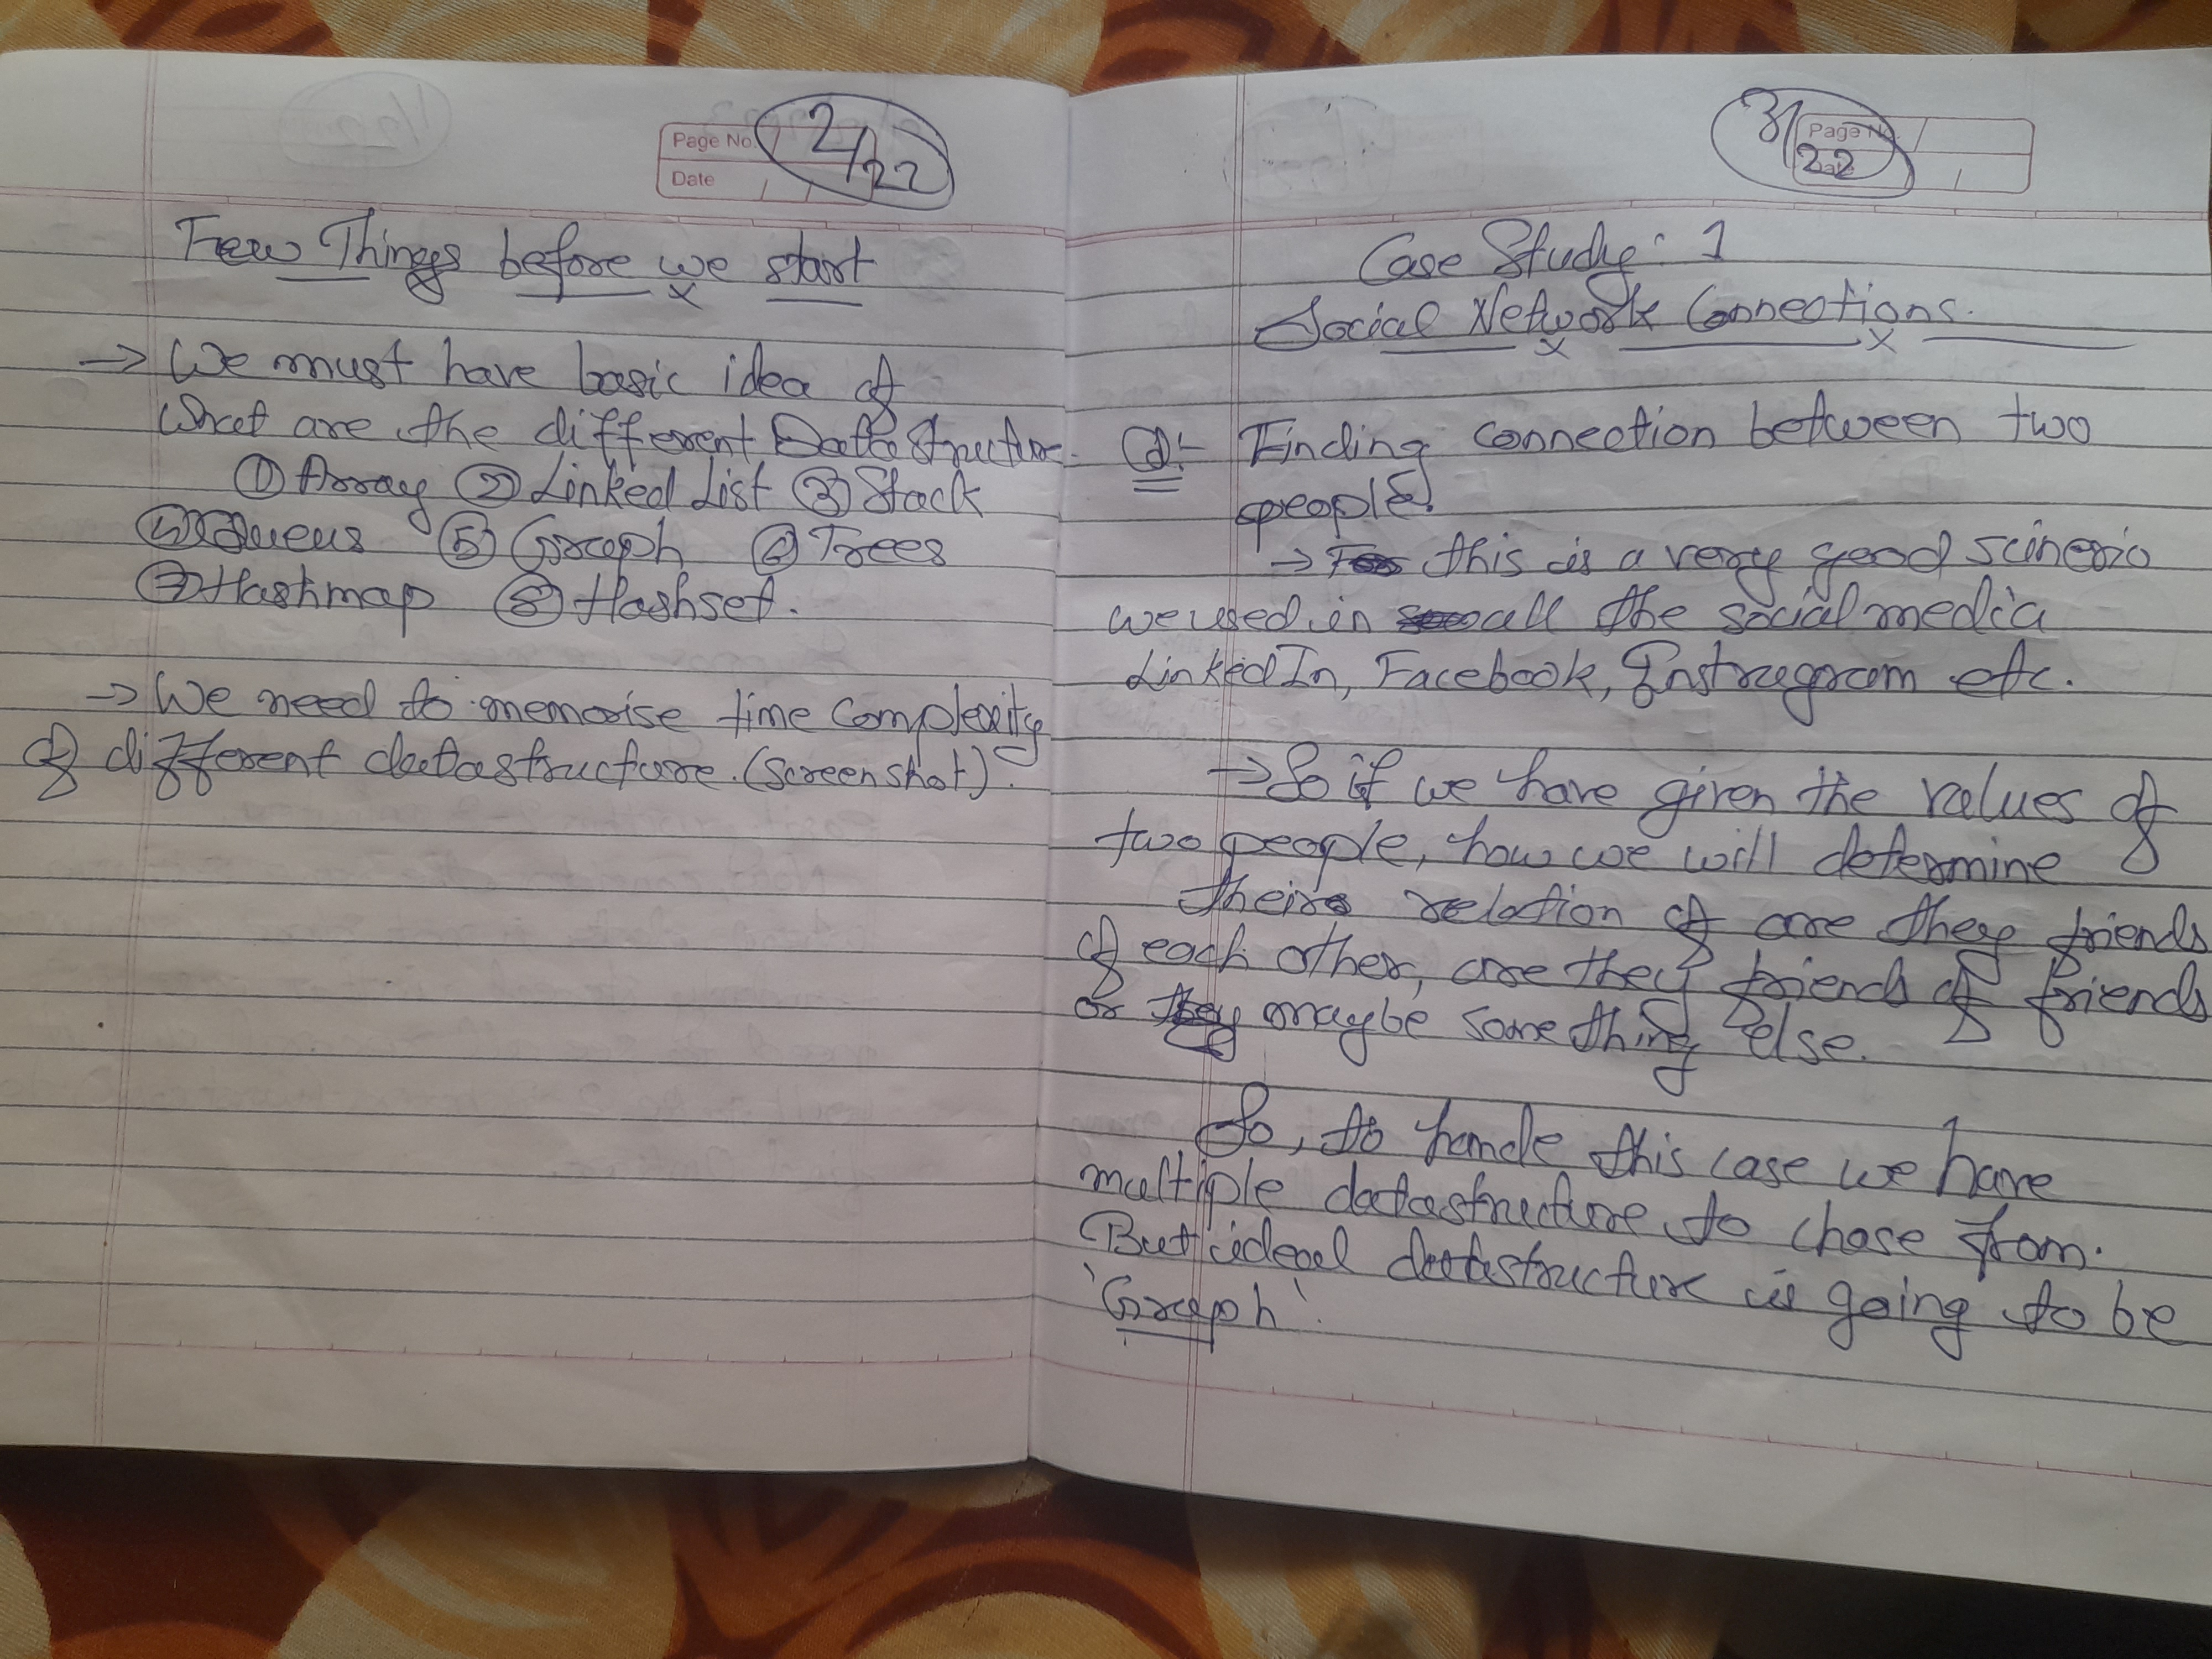 2/22
Page No.
Date
Few Things before we start
→ We must have basic idea of
what are the different Data Structure.
① Array ② Linked List ③ Stack
④ Queue ⑤ Graph ⑥ Trees
⑦ Hashmap ⑧ Hashset.
→ We need to memorise time complexity
of different datastructure. (Screenshot).
3/22
Page No.
Date
Case Study: 1
Social Network Connections.
Q1- Finding connection between two
people.
→ this is a very good scinerio
we used in all the social media
LinkedIn, Facebook, Instragram etc.
→ So if we have given the values of
two people, how we will determine
their relation if are they friends
of each other, are they friends of friends
or maybe something else.
So, to handle this case we have
multiple datastructure to chose from.
But ideal datastructure is going to be
'Graph'.